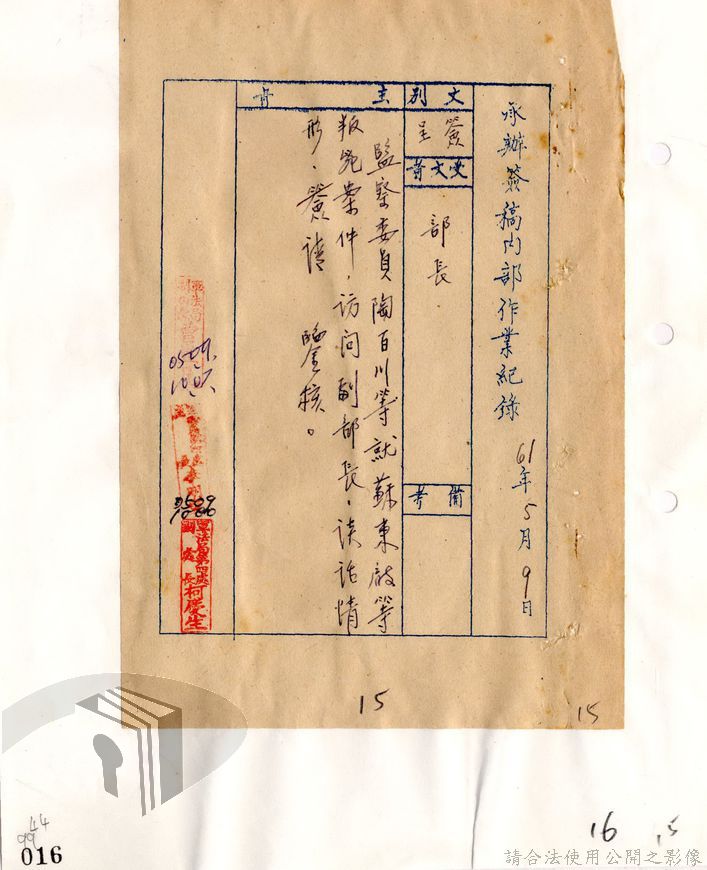 承辦簽稿內部作業紀錄 61年5月9日
文別
簽呈
受文者
部長
備考
主旨
監察委員陶百川等就蘇東啟等
叛亂案件，訪問副部長，談話情
形，簽請 鑒核。
0509
1000
軍法局第四處
副處長柯慶生
15
15
16
15
44
99
016
請合法使用公開之影像